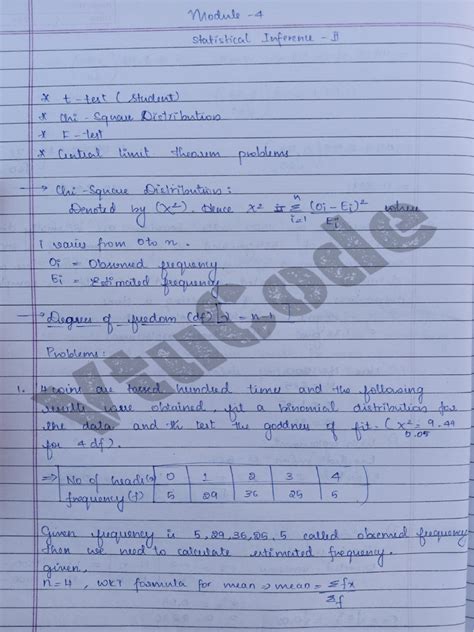 Module - 4
Statistical Inference - II
* t-test (student)
* Chi-Square Distribution
* F-test
* Central limit theorem problems
→ Chi-Square Distribution:
Denoted by (X²). Hence X² = Σ (Oi - Ei)² / Ei where
n
i=1
I varies from 0 to n.
Oi = Observed frequency
Ei = Estimated frequency
→ Degree of freedom (df) = n-1
Problems:
1. 4 coins are tossed hundred times and the following
results were obtained, fit a binomial distribution for
the data and test the goodness of fit. (X²0.05 = 9.49
for 4 df).
⇒ No of heads(x) 0 1 2 3 4
frequency (f) 5 29 36 25 5
Given frequency is 5, 29, 36, 25, 5 called observed frequency
then we need to calculate estimated frequency.
given,
n=4, WKT formula for mean ⇒ mean = Σfx / Σf
VtuCode